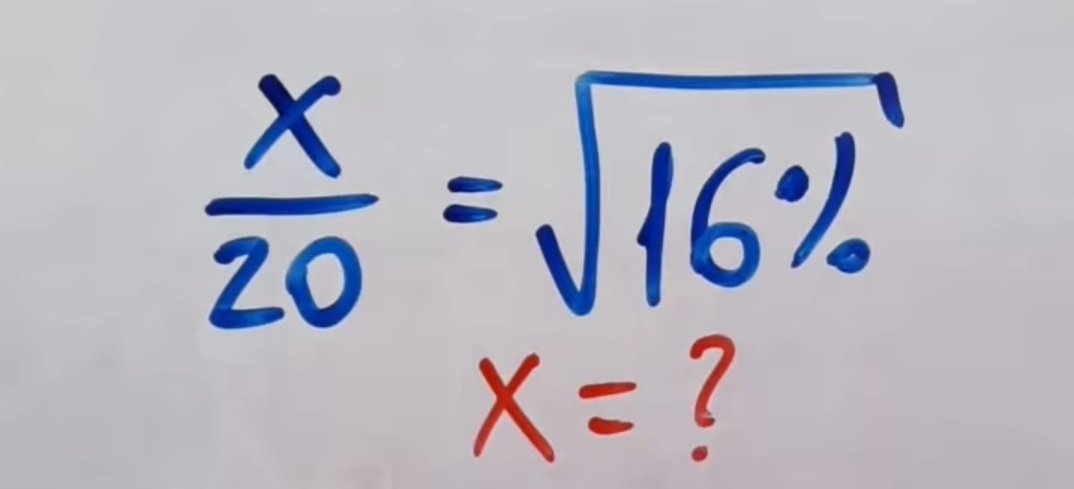 x/20 = √16%
x = ?